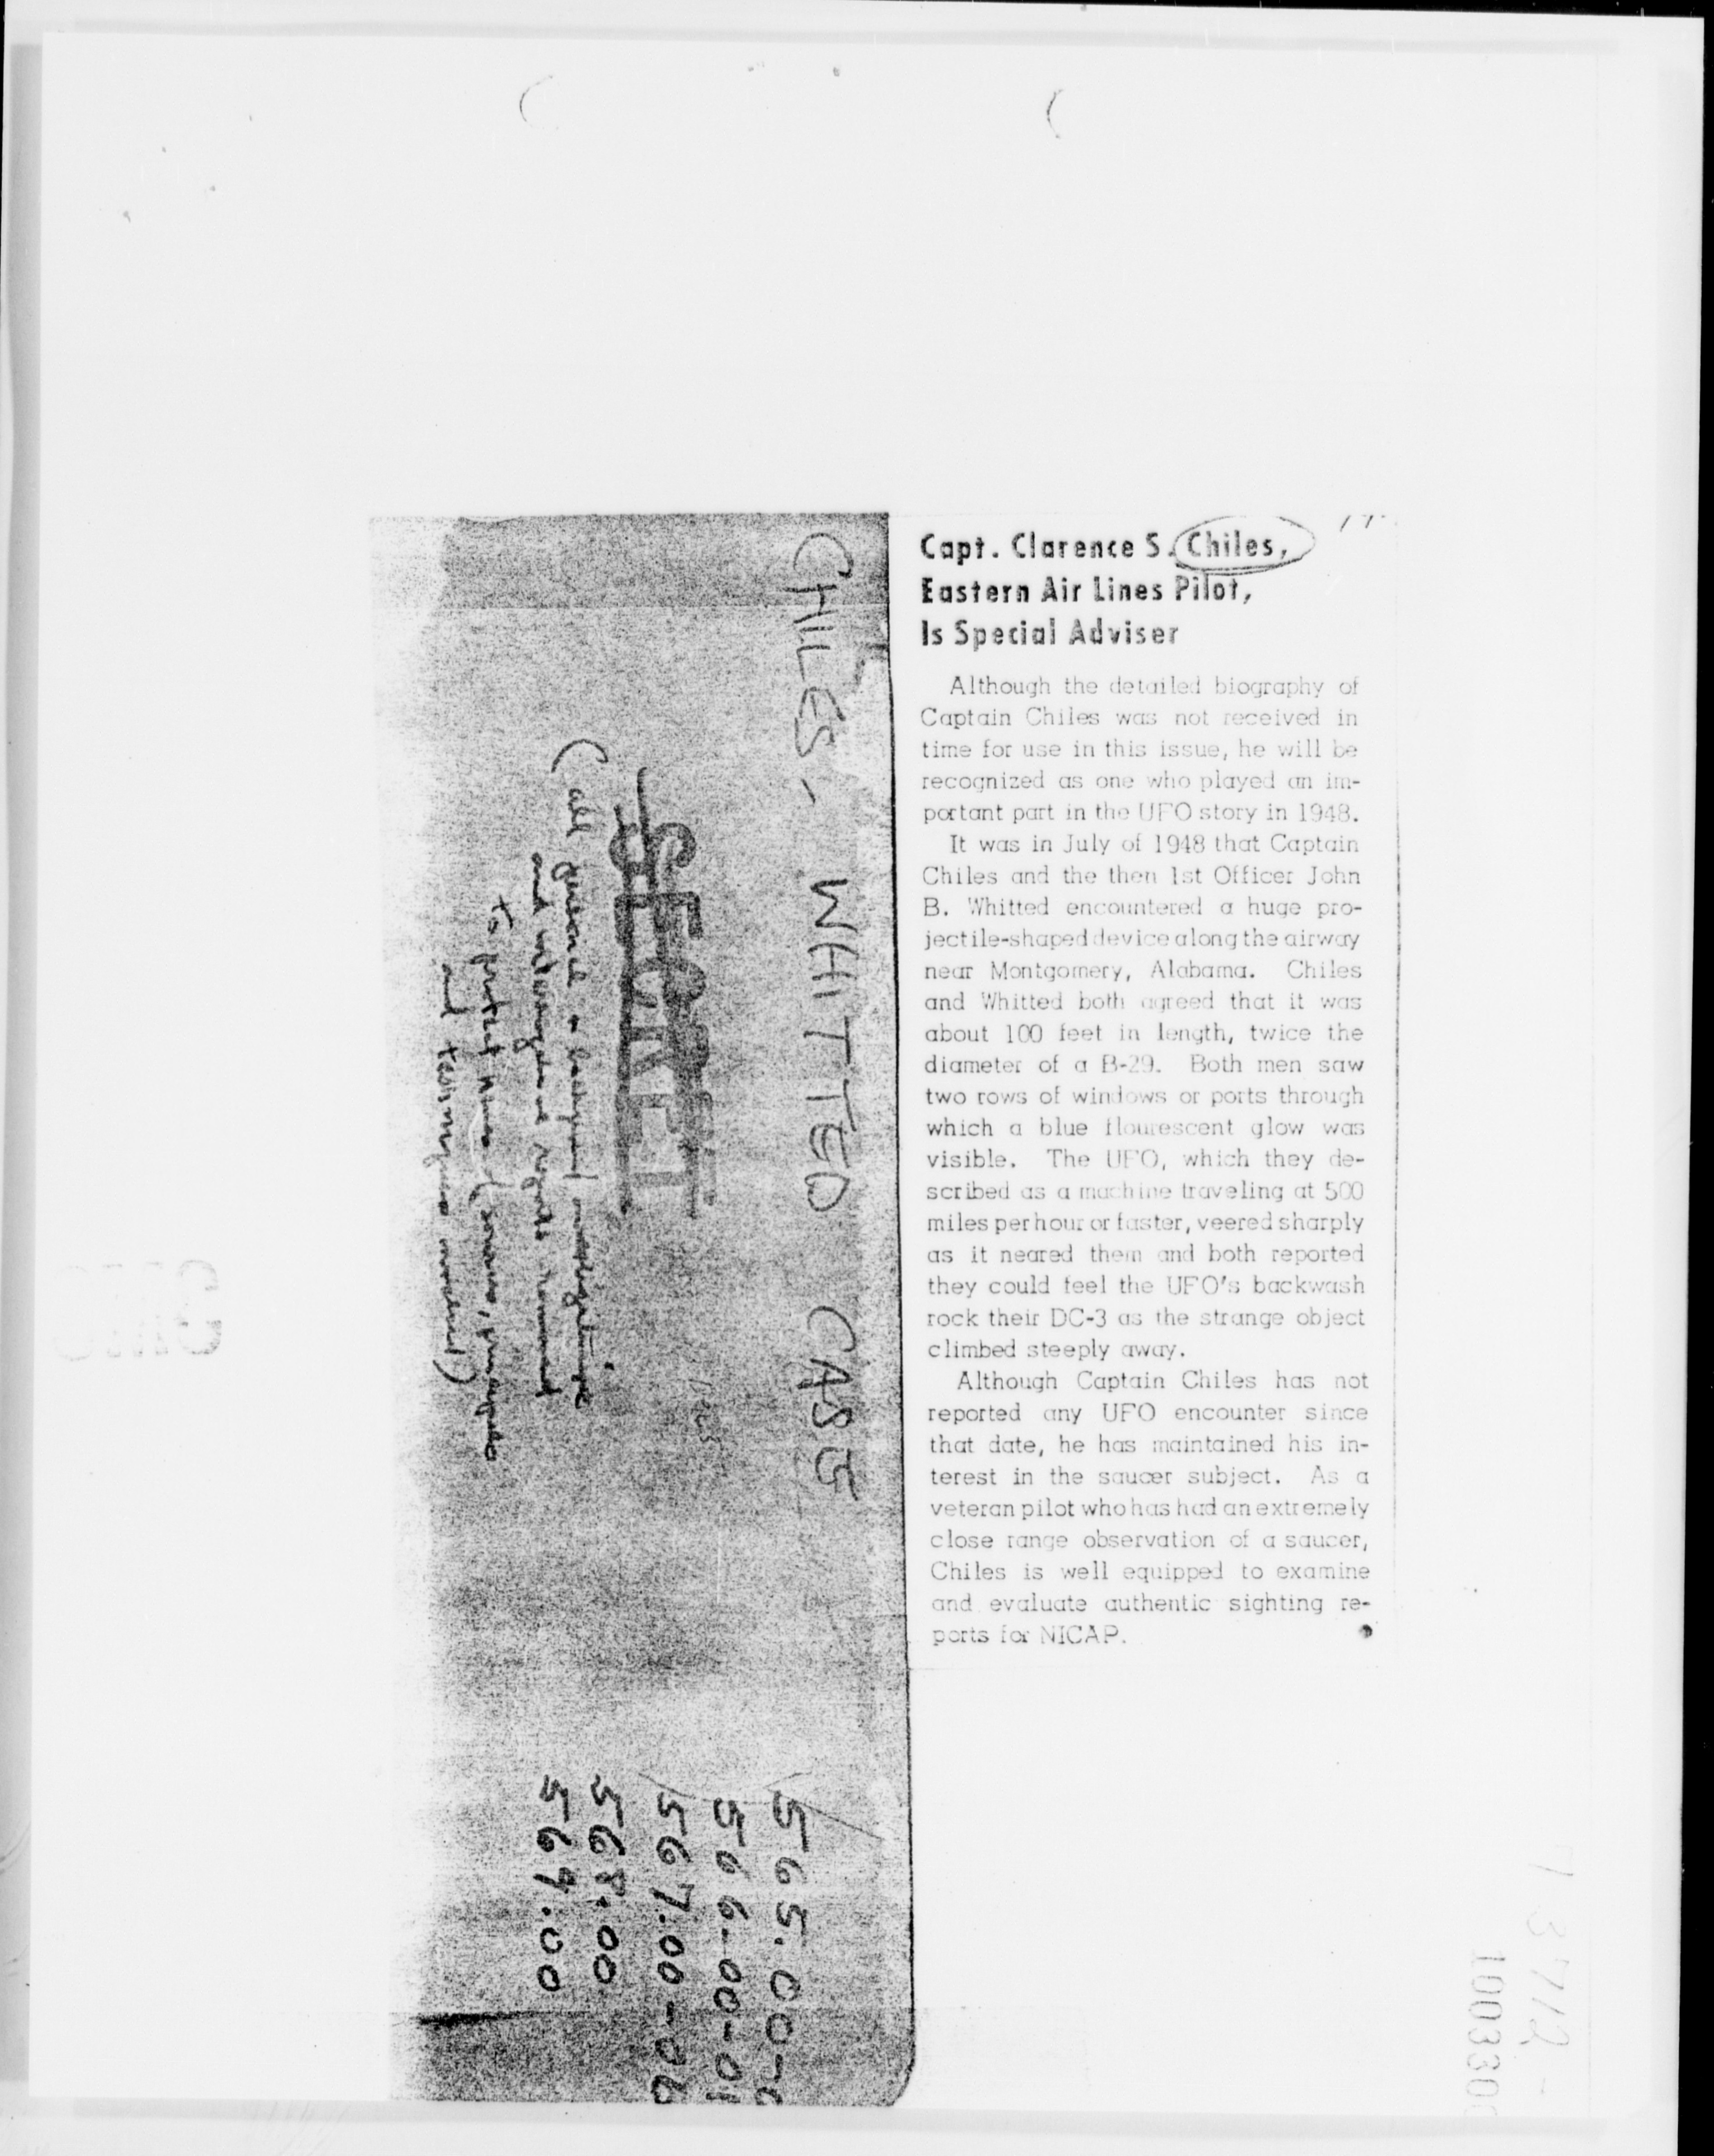 Capt. Clarence S. Chiles,
Eastern Air Lines Pilot,
Is Special Adviser
Although the detailed biography of
Captain Chiles was not received in
time for use in this issue, he will be
recognized as one who played an im-
portant part in the UFO story in 1948.
It was in July of 1948 that Captain
Chiles and the then 1st Officer John
B. Whitted encountered a huge pro-
jectile-shaped device along the airway
near Montgomery, Alabama. Chiles
and Whitted both agreed that it was
about 100 feet in length, twice the
diameter of a B-29. Both men saw
two rows of windows or ports through
which a blue flourescent glow was
visible. The UFO, which they de-
scribed as a machine traveling at 500
miles per hour or faster, veered sharply
as it neared them and both reported
they could feel the UFO's backwash
rock their DC-3 as the strange object
climbed steeply away.
Although Captain Chiles has not
reported any UFO encounter since
that date, he has maintained his in-
terest in the saucer subject. As a
veteran pilot who has had an extremely
close range observation of a saucer,
Chiles is well equipped to examine
and evaluate authentic sighting re-
ports for NICAP.
CHILES, WHITTED CASE
SECRET
SECRET
(all general
and
to protect
and
565.00-0
566-00-01
567.00-02
568.00
569.00